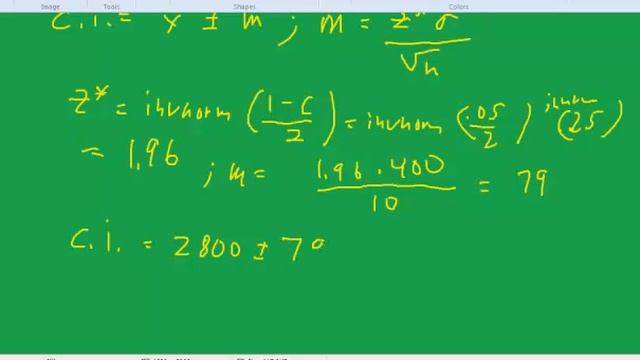 Image Tools Shapes Colors
C.I. = x ± m ; m = z* σ / √n
z* = invnorm (1-C / 2) = invnorm (.05 / 2) invnorm (25)
= 1.96 ; m = 1.96 · 400 / 10 = 79
C.I. = 2800 ± 79